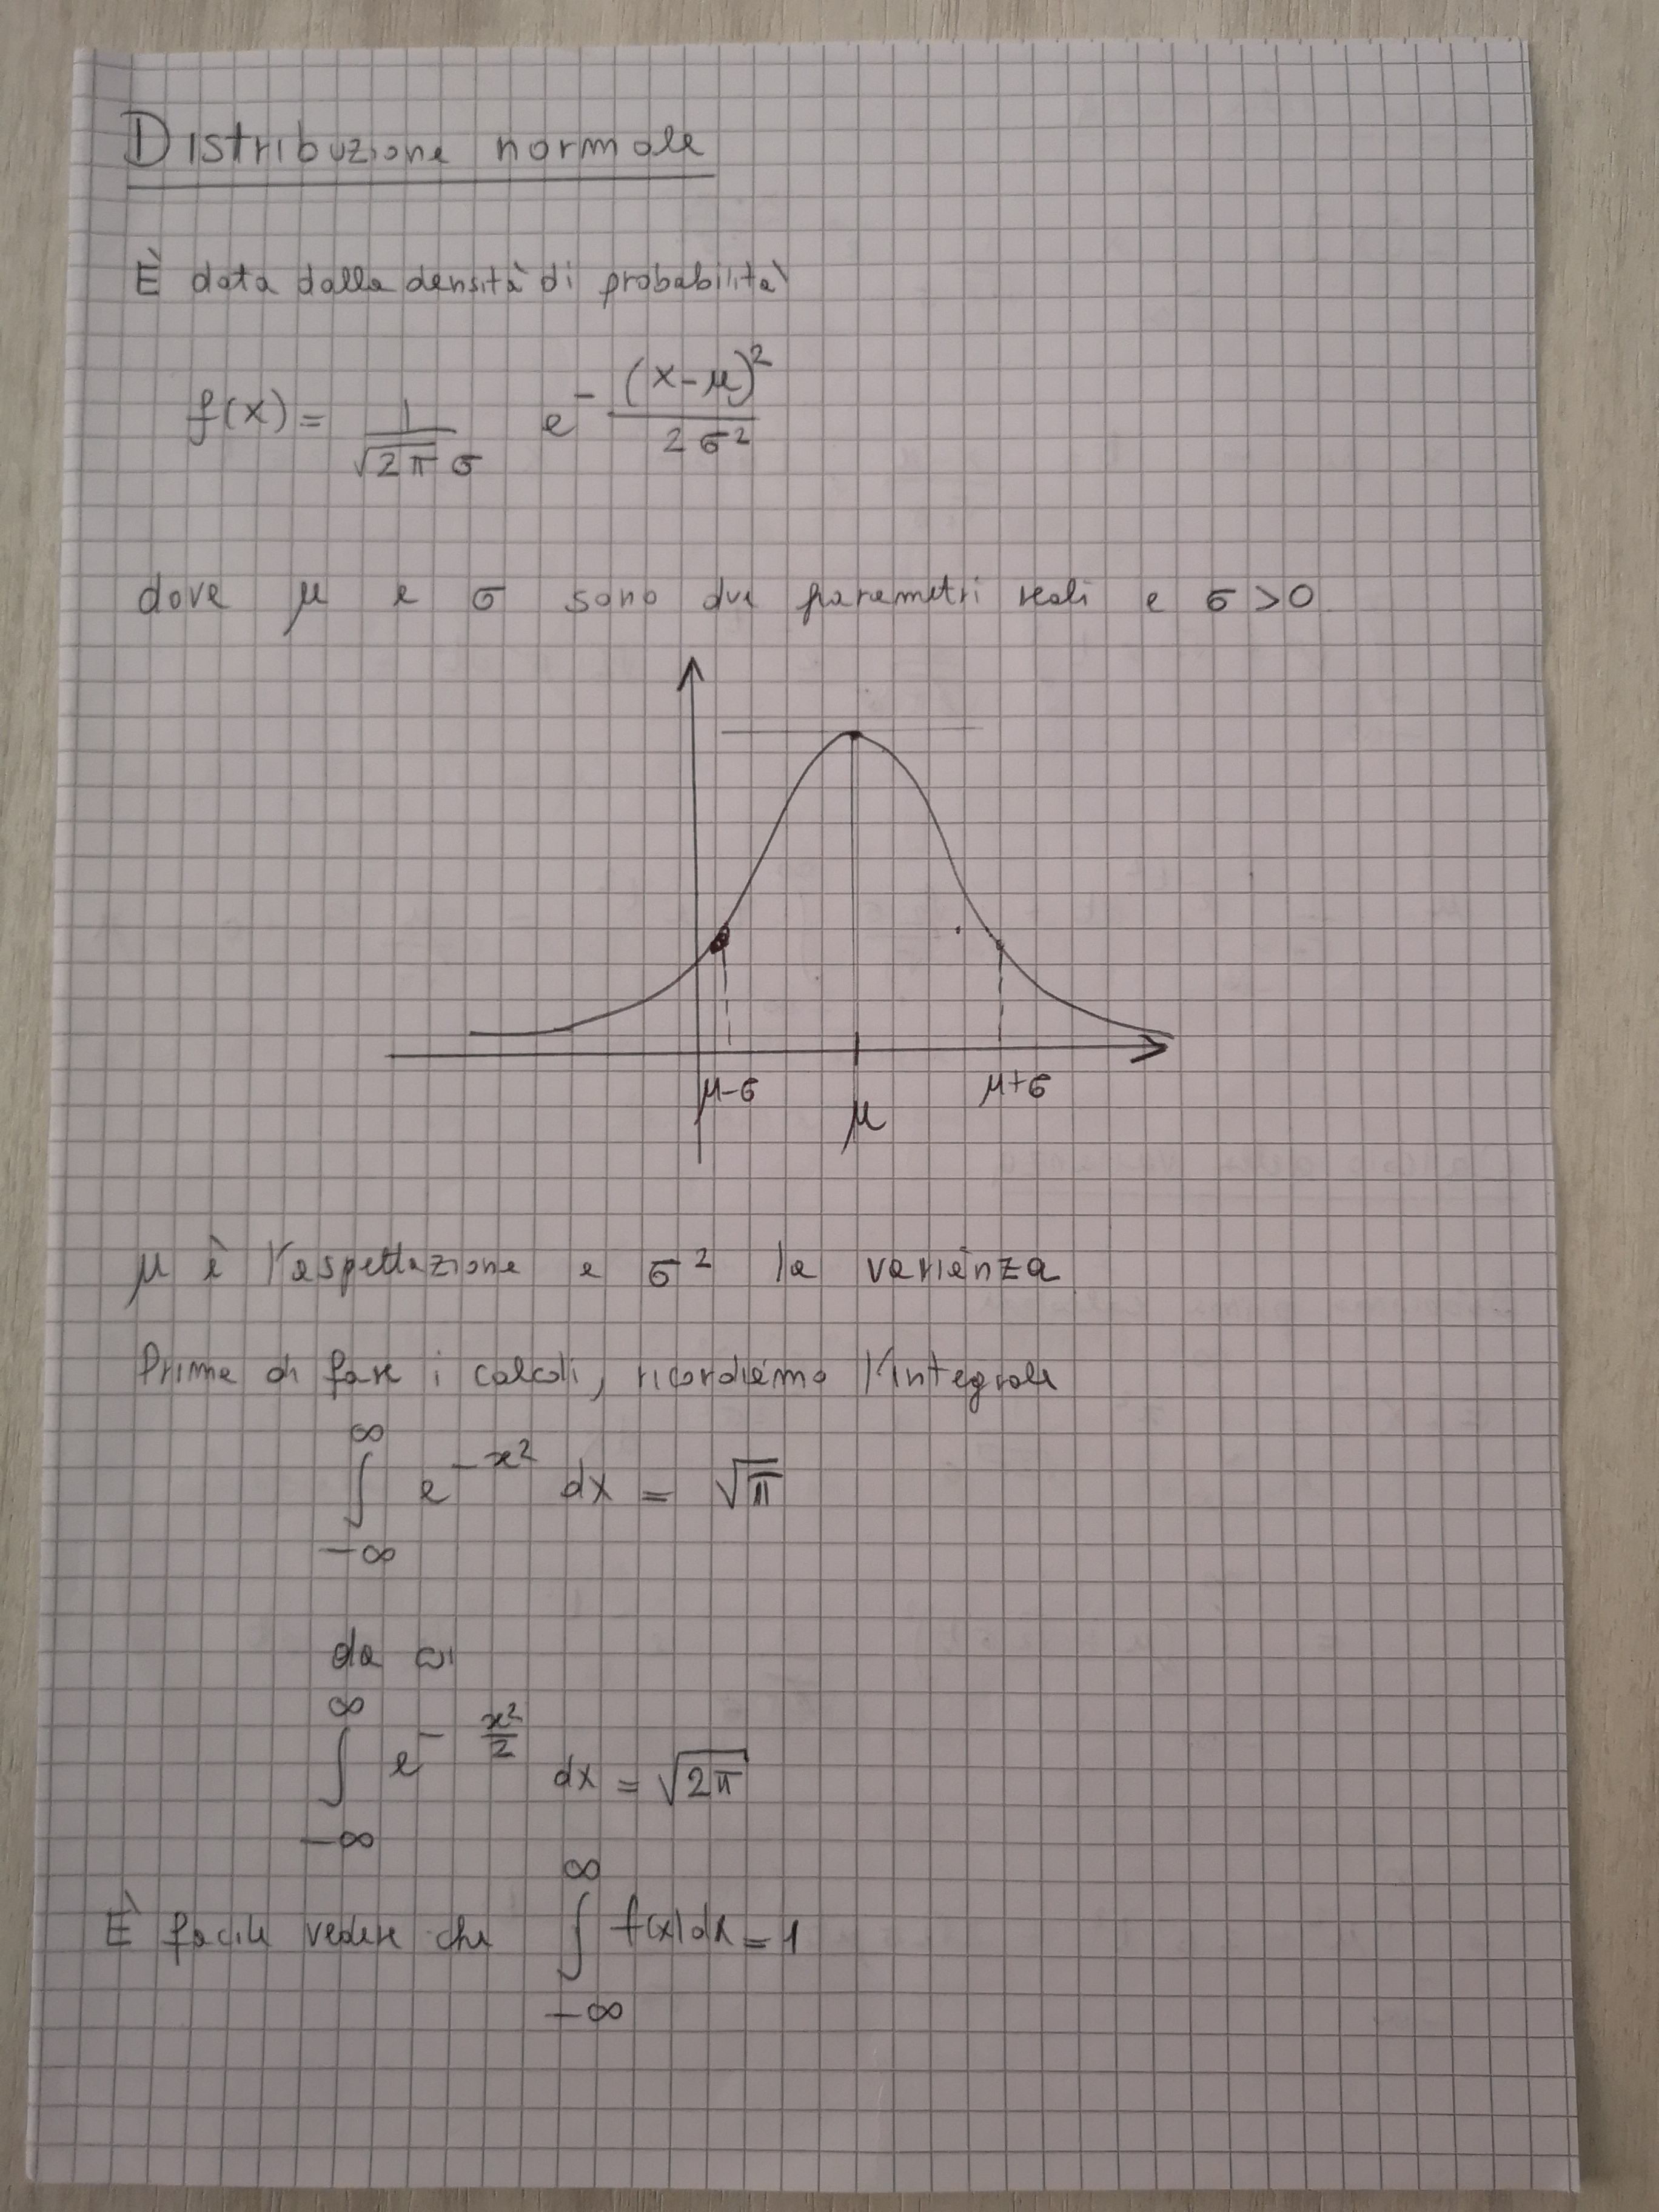 Distribuzione normale
È data dalla densità di probabilità
f(x) = 1/(√(2π) σ) e^(-(x-μ)²/(2σ²))
dove μ e σ sono due parametri reali e σ > 0
μ-σ μ μ+σ
μ è l'aspettazione e σ² la varianza
Prima di fare i calcoli, ricordiamo l'integrale
∫_{-∞}^{∞} e^(-x²) dx = √π
da cui
∫_{-∞}^{∞} e^(-x²/2) dx = √(2π)
È facile vedere che ∫_{-∞}^{∞} f(x)dx = 1